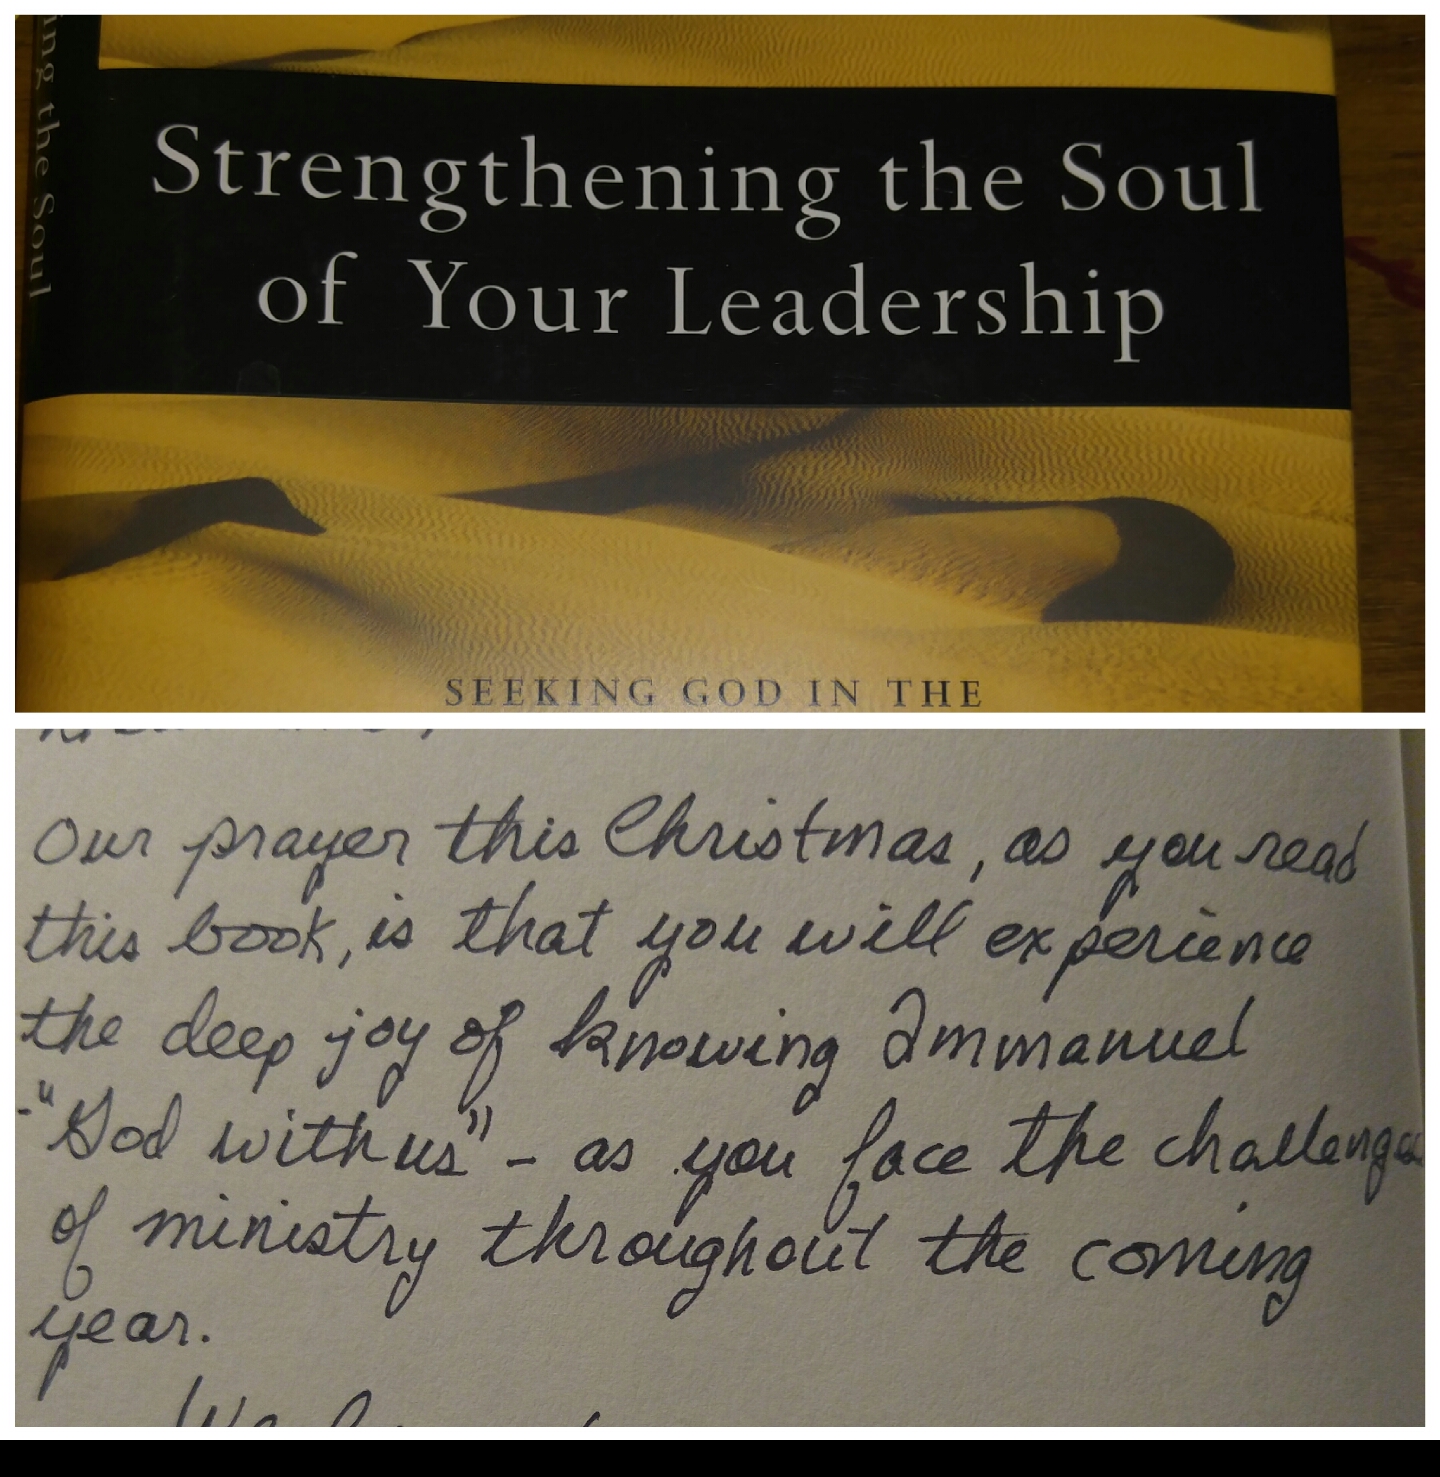 ing the Soul
Strengthening the Soul
of Your Leadership
SEEKING GOD IN THE
Our prayer this Christmas, as you read
this book, is that you will experience
the deep joy of knowing Immanuel
-"God with us" - as you face the challenges
of ministry throughout the coming
year.